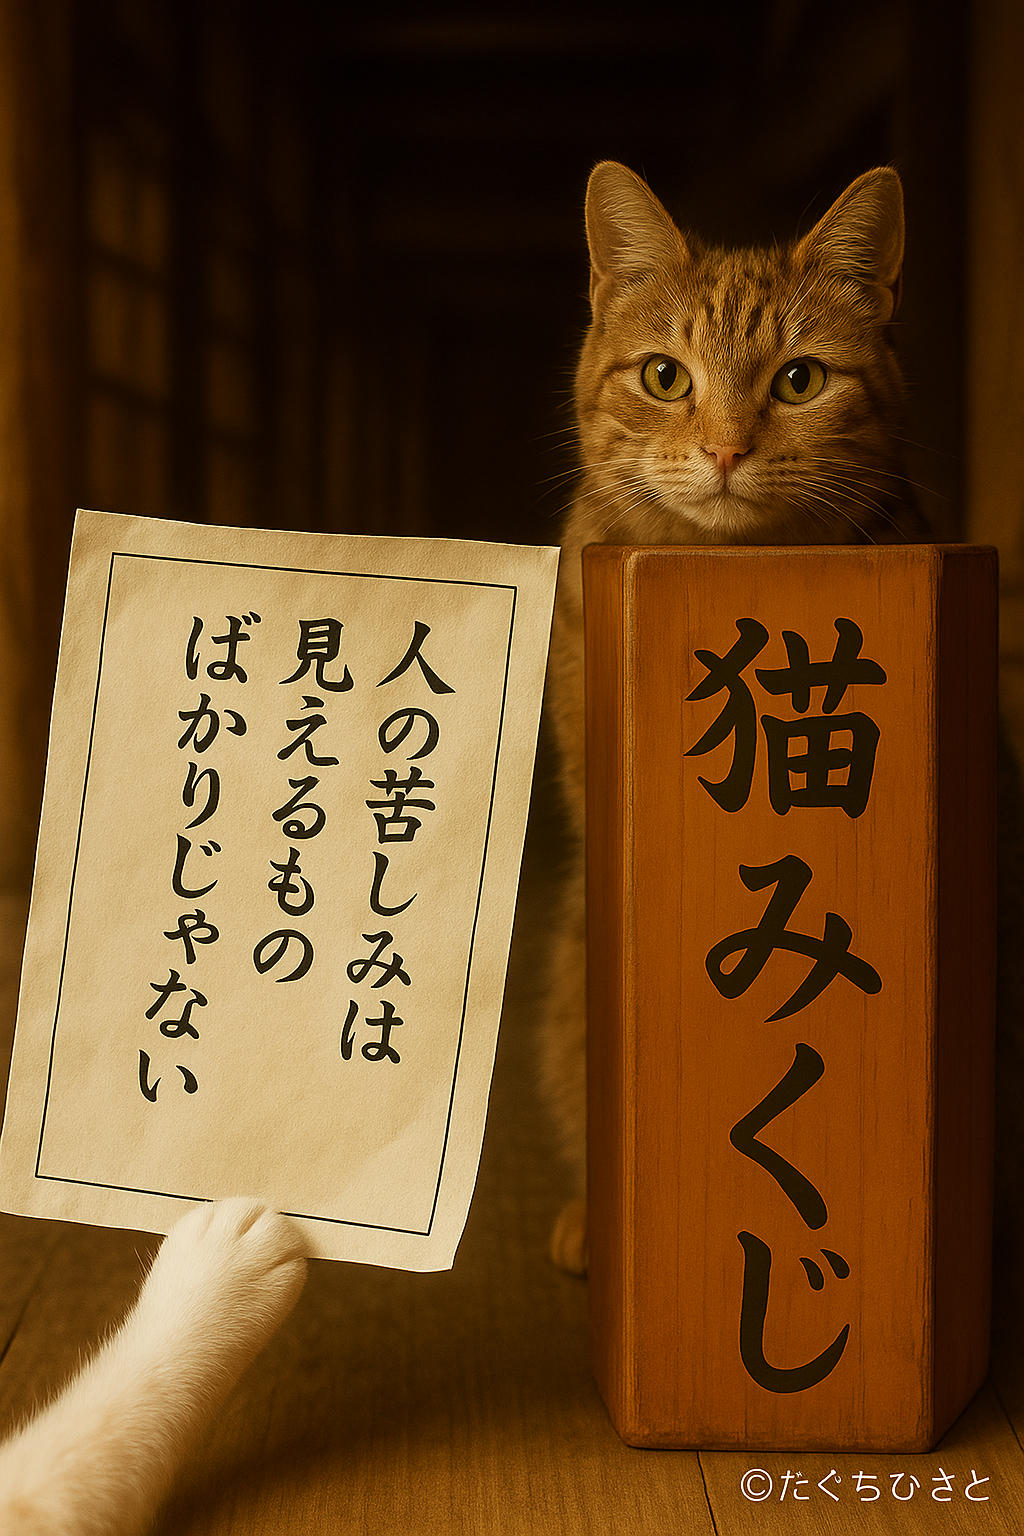 人の苦しみは
見えるもの
ばかりじゃない
猫みくじ
©だぐちひさと